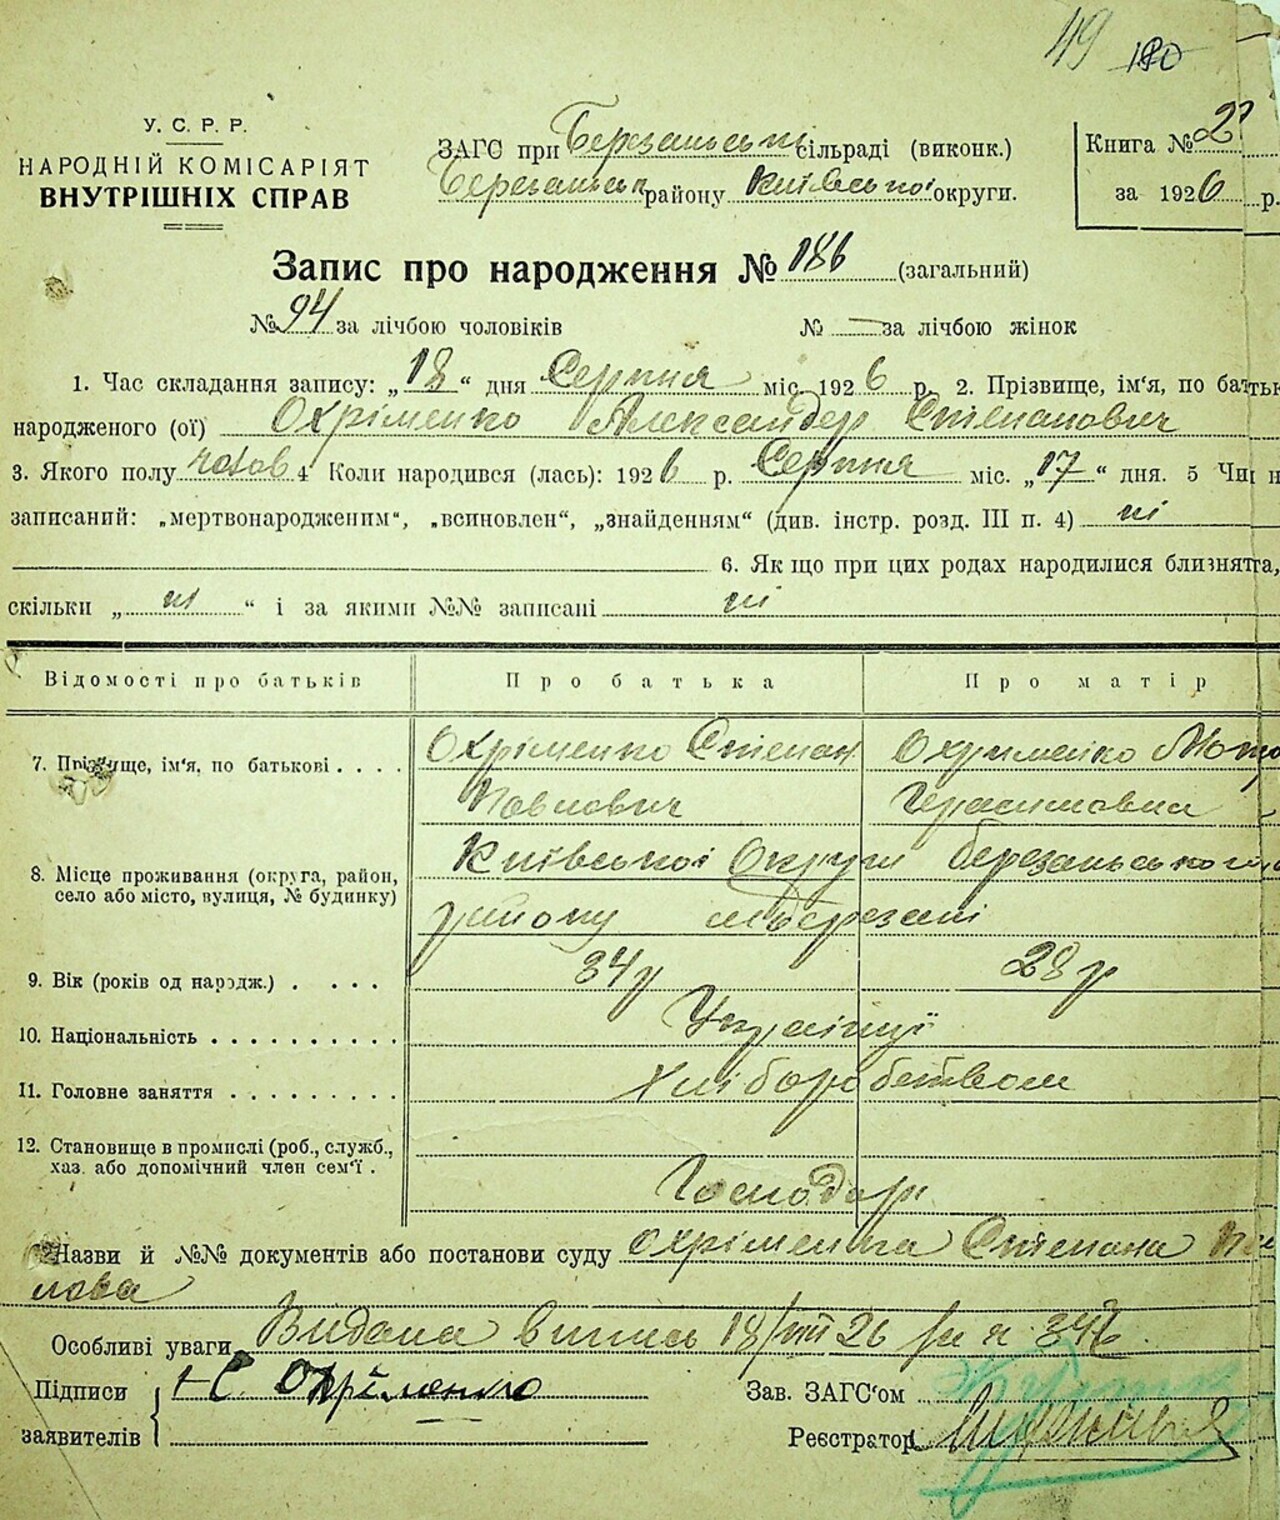 49 180
У. С. Р. Р.
НАРОДНІЙ КОМІСАРІЯТ
ВНУТРІШНІХ СПРАВ
ЗАГС при Березанськ сільраді (виконк.)
Березанськ району Київської округи.
Книга № 2
за 1926 р.
Запис про народження № 186 (загальний)
№ 94 за лічбою чоловіків № — за лічбою жінок
1. Час складання запису: „18“ дня Серпня міс. 1926 р. 2. Прізвище, ім‘я, по батьк
народженого (ої) Охріменко Александер Степанович
3. Якого полу чолов 4 Коли народився (лась): 1926 р. Серпня міс. „17“ дня. 5 Чи н
записаний: „мертвонародженим“, „всиновлен“, „знайденням“ (див. інстр. розд. III п. 4) ні
6. Як що при цих родах народилися близнята,
скільки „ні“ і за якими №№ записані ні
Відомості про батьків Про батька Про матір
7. Прізвище, ім‘я, по батькові . . . . Охріменко Степан Охрименко Мотр
Павлович Герасимовна
8. Місце проживання (округа, район, село або місто, вулиця, № будинку) Київської Округи Березанського
району м Березані
9. Вік (років од народж.) . . . . 34 р 28 р
10. Національність . . . . . . . . . . Українці
11. Головне заняття . . . . . . . . . Хліборобством
12. Становище в промислі (роб., служб.,
хаз. або допомічний член сем‘ї . Господарі
Назви й №№ документів або постанови суду Охріменка Степана Пав
лова
Особливі уваги Видана випись 18/VIII 26 за № 346
Підписи заявителів С. Охріменко
Зав. ЗАГС‘ом
Реєстратор